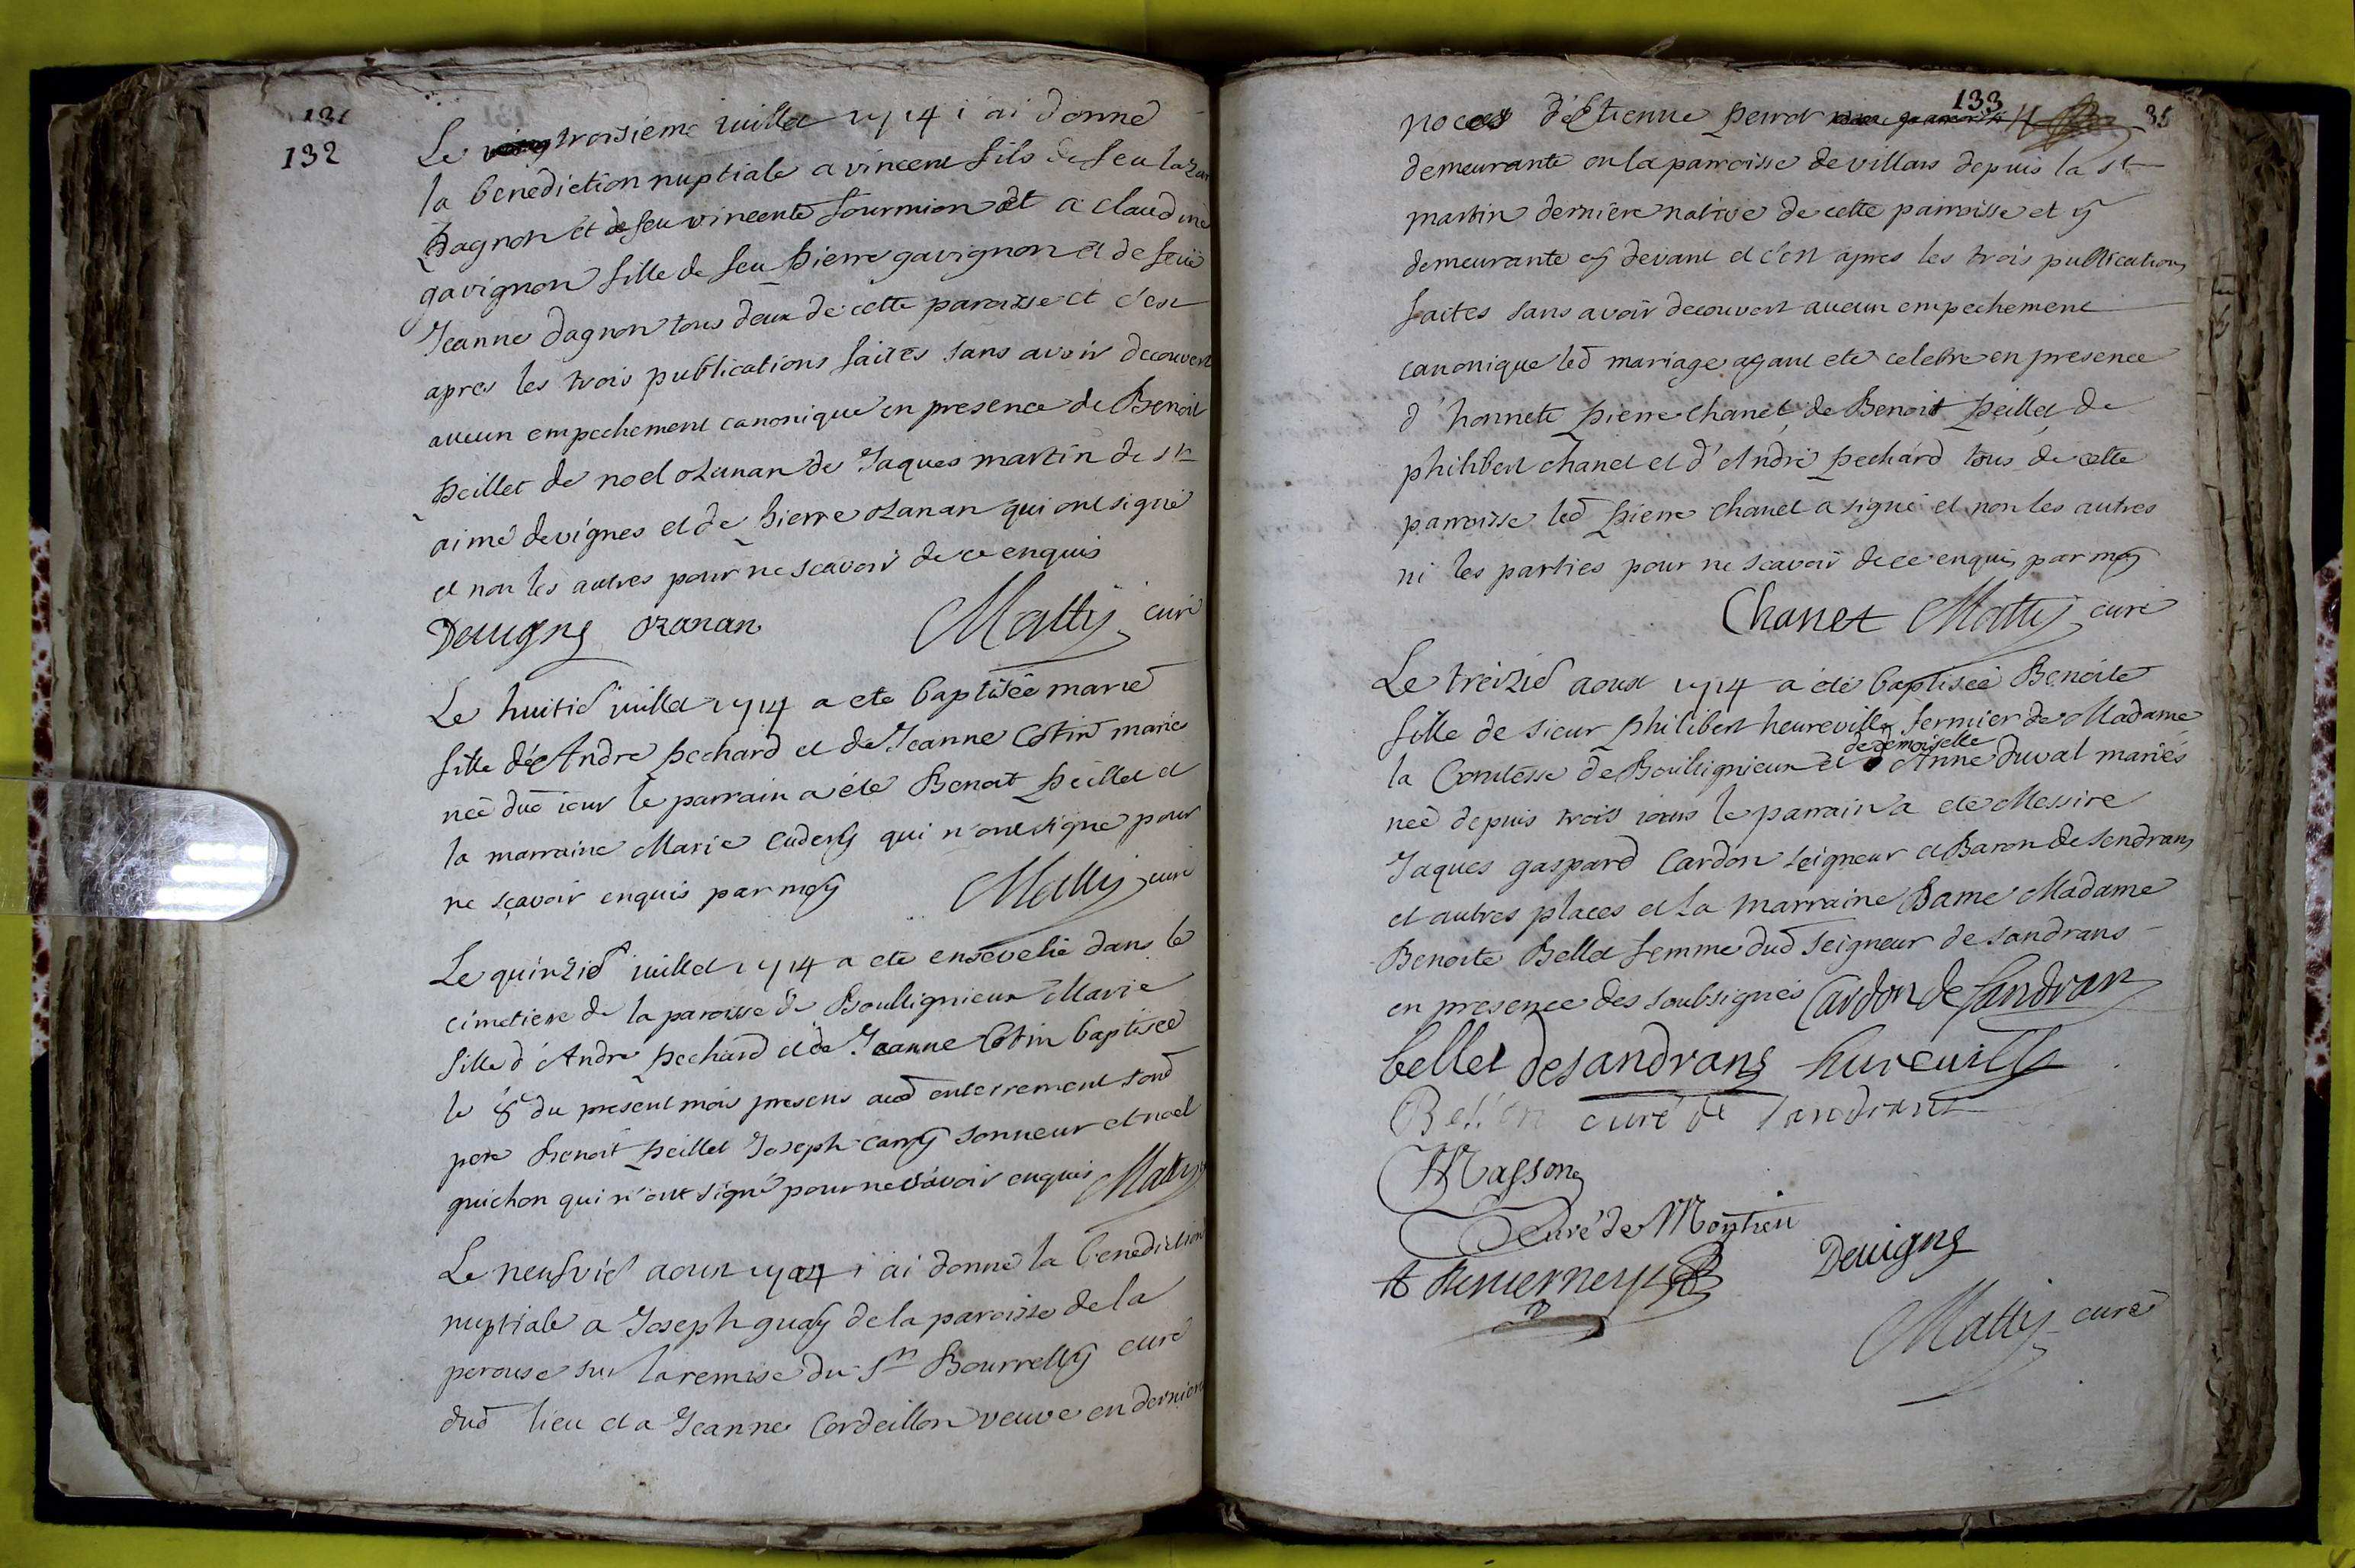 131
132
Le troisieme juillet 1714 i ai donné
la benediction nuptiale a vincent fils de feu Lazar
Dagnon et de feu vincente fourmion et a claudine
gavignon fille de feu pierre gavignon et de feüe
Jeanne dagnon tous deux de cette paroisse et c'est
apres les trois publications faites sans avoir decouvert
aucun empechement canonique en presence de Benoit
peillet de noel ozanan de Jaques martin de sr
aimé devignes et de pierre ozanan qui ont signé
et non les autres pour ne scavoir de ce enquis
Devigne ozanan Matty curé
Le huitié juillet 1714 a eté baptisée marie
fille d'Andre pechard et de Jeanne Cotin mariés
née dud iour le parrain a été Benoit peillet et
la marraine Marie cudery qui n'ont signé pour
ne sçavoir enquis par moy Matty curé
Le quinzié juillet 1714 a eté ensevelie dans le
cimetiere de la paroisse de Boulignieux Marie
fille d'Andre pechard et de Jeanne Cotin baptisée
le 8e du present mois presens aud enterrement sond
pere Benoit peillet Joseph carry sonneur et noel
guichon qui n'ont signé pour ne scavoir enquis Matty
Le neufvié aoust 1714 i ai donné la benediction
nuptiale a Joseph guay de la paroisse de la
perouse sur la remise du Sr Bourrelly curé
dud lieu et a Jeanne Cordeillon veuve en derniere
133
35
noces d'Etienne perrot
demeurante en la parroisse de villars depuis la st
martin derniere native de cette parroisse et y
demeurante cy devant et c'est apres les trois publications
faites sans avoir decouvert aucun empechement
canonique led mariage ayant eté celebré en presence
d'honnete pierre chanet, de Benoit peillet, de
philibert chanet et d'André pechard tous de cette
parroisse led pierre chanet a signé et non les autres
ni les parties pour ne scavoir de ce enquis par moy
Chanet Matty curé
Le treizié aoust 1714 a été baptisée Benoite
fille de sieur philibert heureville fermier de Madame
de demoiselle
la Comtesse de Boulignieux et Anne Duval mariés
neé depuis trois iours le parrain a eté Messire
Jaques gaspard Cardon seigneur et Baron de sendrans
et autres places et la marraine Dame Madame
Benoite Bellet femme dud seigneur de sandrans
en presence des soubsignés Cardon de Sandran
bellet desandrans hureuille
curé de Sandrans
Masson
Curé de Monthieu
Devigne
Matty curé